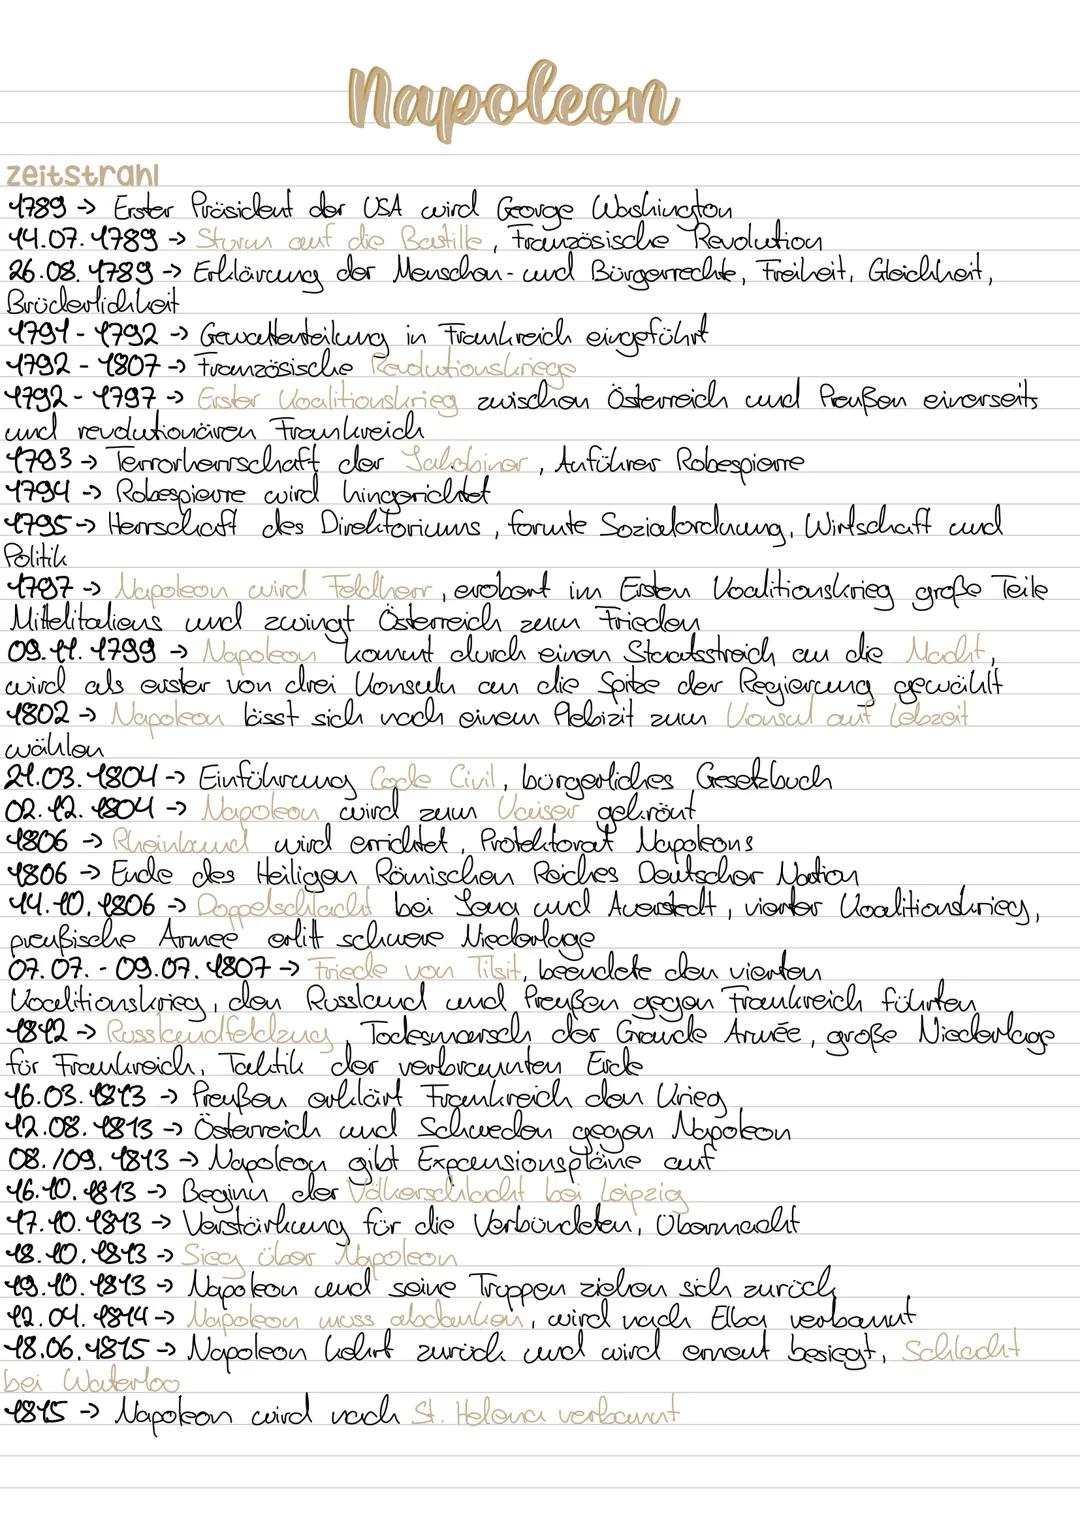 Napoleon
Zeitstrahl
1789 -> Erster Präsident der USA wird George Washington
14.07.1789 -> Sturm auf die Bastille, Französische Revolution
26.08.1789 -> Erklärung der Menschen- und Bürgerrechte, Freiheit, Gleichheit,
Brüderlichkeit
1791 - 1792 -> Gewaltenteilung in Frankreich eingeführt
1792 - 1807 -> Französische Revolutionskriege
1792 - 1797 -> Erster Koalitionskrieg zwischen Österreich und Preußen einerseits
und revolutionären Frankreich
1793 -> Terrorherrschaft der Jakobiner, Anführer Robespierre
1794 -> Robespierre wird hingerichtet
1795 -> Herrschaft des Direktoriums, formte Sozialordnung, Wirtschaft und
Politik
1797 -> Napoleon wird Feldherr, erobert im Ersten Koalitionskrieg große Teile
Mittelitaliens und zwingt Österreich zum Frieden
09.11.1799 -> Napoleon kommt durch einen Staatsstreich an die Macht,
wird als erster von drei Konsuln an die Spitze der Regierung gewählt
1802 -> Napoleon lässt sich nach einem Plebizit zum Konsul auf Lebzeit
wählen
21.03.1804 -> Einführung Code Civil, bürgerliches Gesetzbuch
02.12.1804 -> Napoleon wird zum Kaiser gekrönt
1806 -> Rheinbund wird errichtet, Protektorat Napoleons
1806 -> Ende des Heiligen Römischen Reiches Deutscher Nation
14.10.1806 -> Doppelschlacht bei Jena und Auerstedt, vierter Koalitionskrieg,
preußische Armee erlitt schwere Niederlage
07.07. - 09.07.1807 -> Friede von Tilsit, beendete den vierten
Koalitionskrieg, den Russland und Preußen gegen Frankreich führten
1812 -> Russlandfeldzug, Todesmarsch der Grande Armée, große Niederlage
für Frankreich, Taktik der verbrannten Erde
16.03.1813 -> Preußen erklärt Frankreich den Krieg
12.08.1813 -> Österreich und Schweden gegen Napoleon
08./09.1813 -> Napoleon gibt Expansionspläne auf
16.10.1813 -> Beginn der Völkerschlacht bei Leipzig
17.10.1813 -> Verstärkung für die Verbündeten, Übermacht
18.10.1813 -> Sieg über Napoleon
19.10.1813 -> Napoleon und seine Truppen ziehen sich zurück
12.04.1814 -> Napoleon muss abdanken, wird nach Elba verbannt
18.06.1815 -> Napoleon kehrt zurück und wird erneut besiegt, Schlacht
bei Waterloo
1815 -> Napoleon wird nach St. Helena verbannt